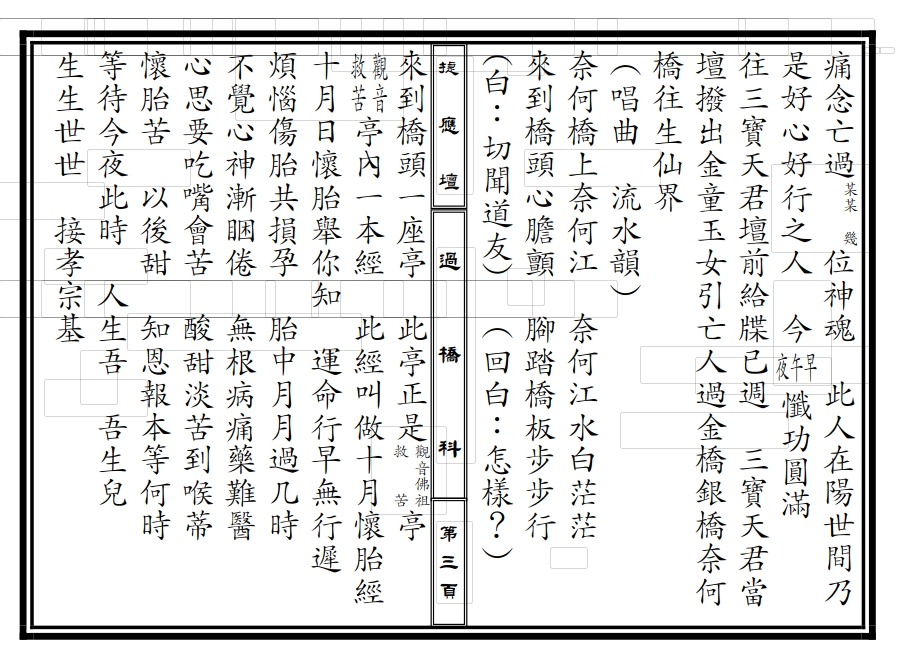 痛念亡過某某 幾位神魂 此人在陽世間乃
是好心好行之人 今夜午早懺功圓滿
往三寶天君壇前給牒已週 三寶天君當
壇撥出金童玉女引亡人過金橋銀橋奈何
橋往生仙界
(唱曲 流水韻)
奈何橋上奈何江 奈何江水白茫茫
來到橋頭心膽顫 腳踏橋板步步行
(白:切聞道友) (回白:怎樣?)
捷應壇 過橋科 第三頁
來到橋頭一座亭 此亭正是觀音佛祖救苦亭
觀音救苦亭內一本經 此經叫做十月懷胎經
十月日懷胎舉你知 運命行早無行遲
煩惱傷胎共損孕 胎中月月過几時
不覺心神漸睏倦 無根病痛藥難醫
心思要吃嘴會苦 酸甜淡苦到喉蒂
懷胎苦 以後甜 知恩報本等何時
等待今夜此時 人生吾 吾生兒
生生世世 接孝宗基